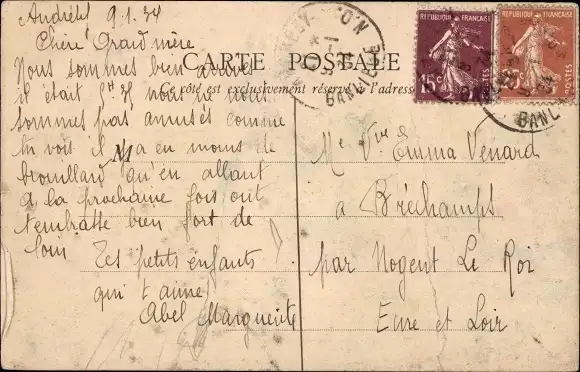 Andrésy 9.1.34
Chère Grand'mère
Nous sommes bien arrivés
il était nous ne nous
sommes pas amusés comme
tu vois il y a en moins de
brouillard qu'en allant
a la prochaine fois ont
t'embrasse bien fort de
loin
Tes petits enfants
qui t'aime
Abel Marguerite
CARTE POSTALE
Ce côté est exclusivement réservé à l'adresse
M
Me Vve Emma Venard
a Bréchamps
par Nogent Le Roi
Eure et Loir
REPUBLIQUE FRANÇAISE
15c
POSTES
REPUBLIQUE FRANÇAISE
POSTES
BANLIEUE
BANL